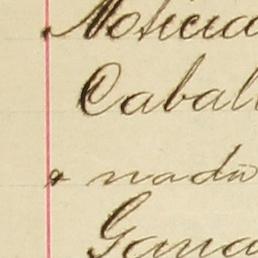 Noticia
Caball
nada
Gana